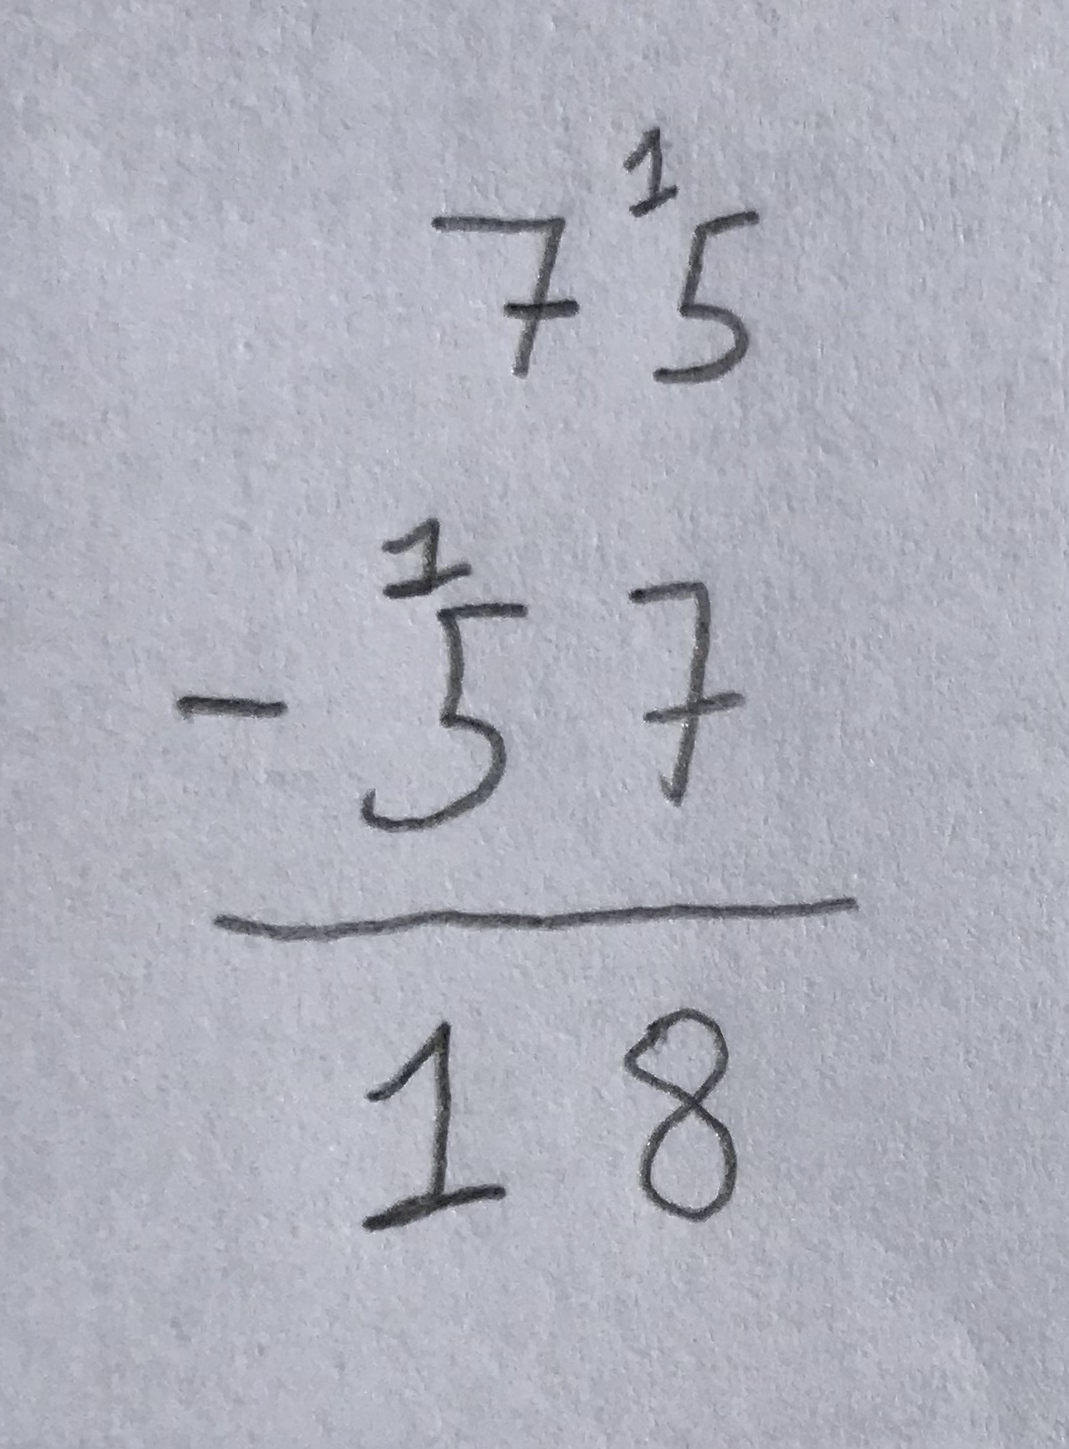 7¹5
- ¹57
18